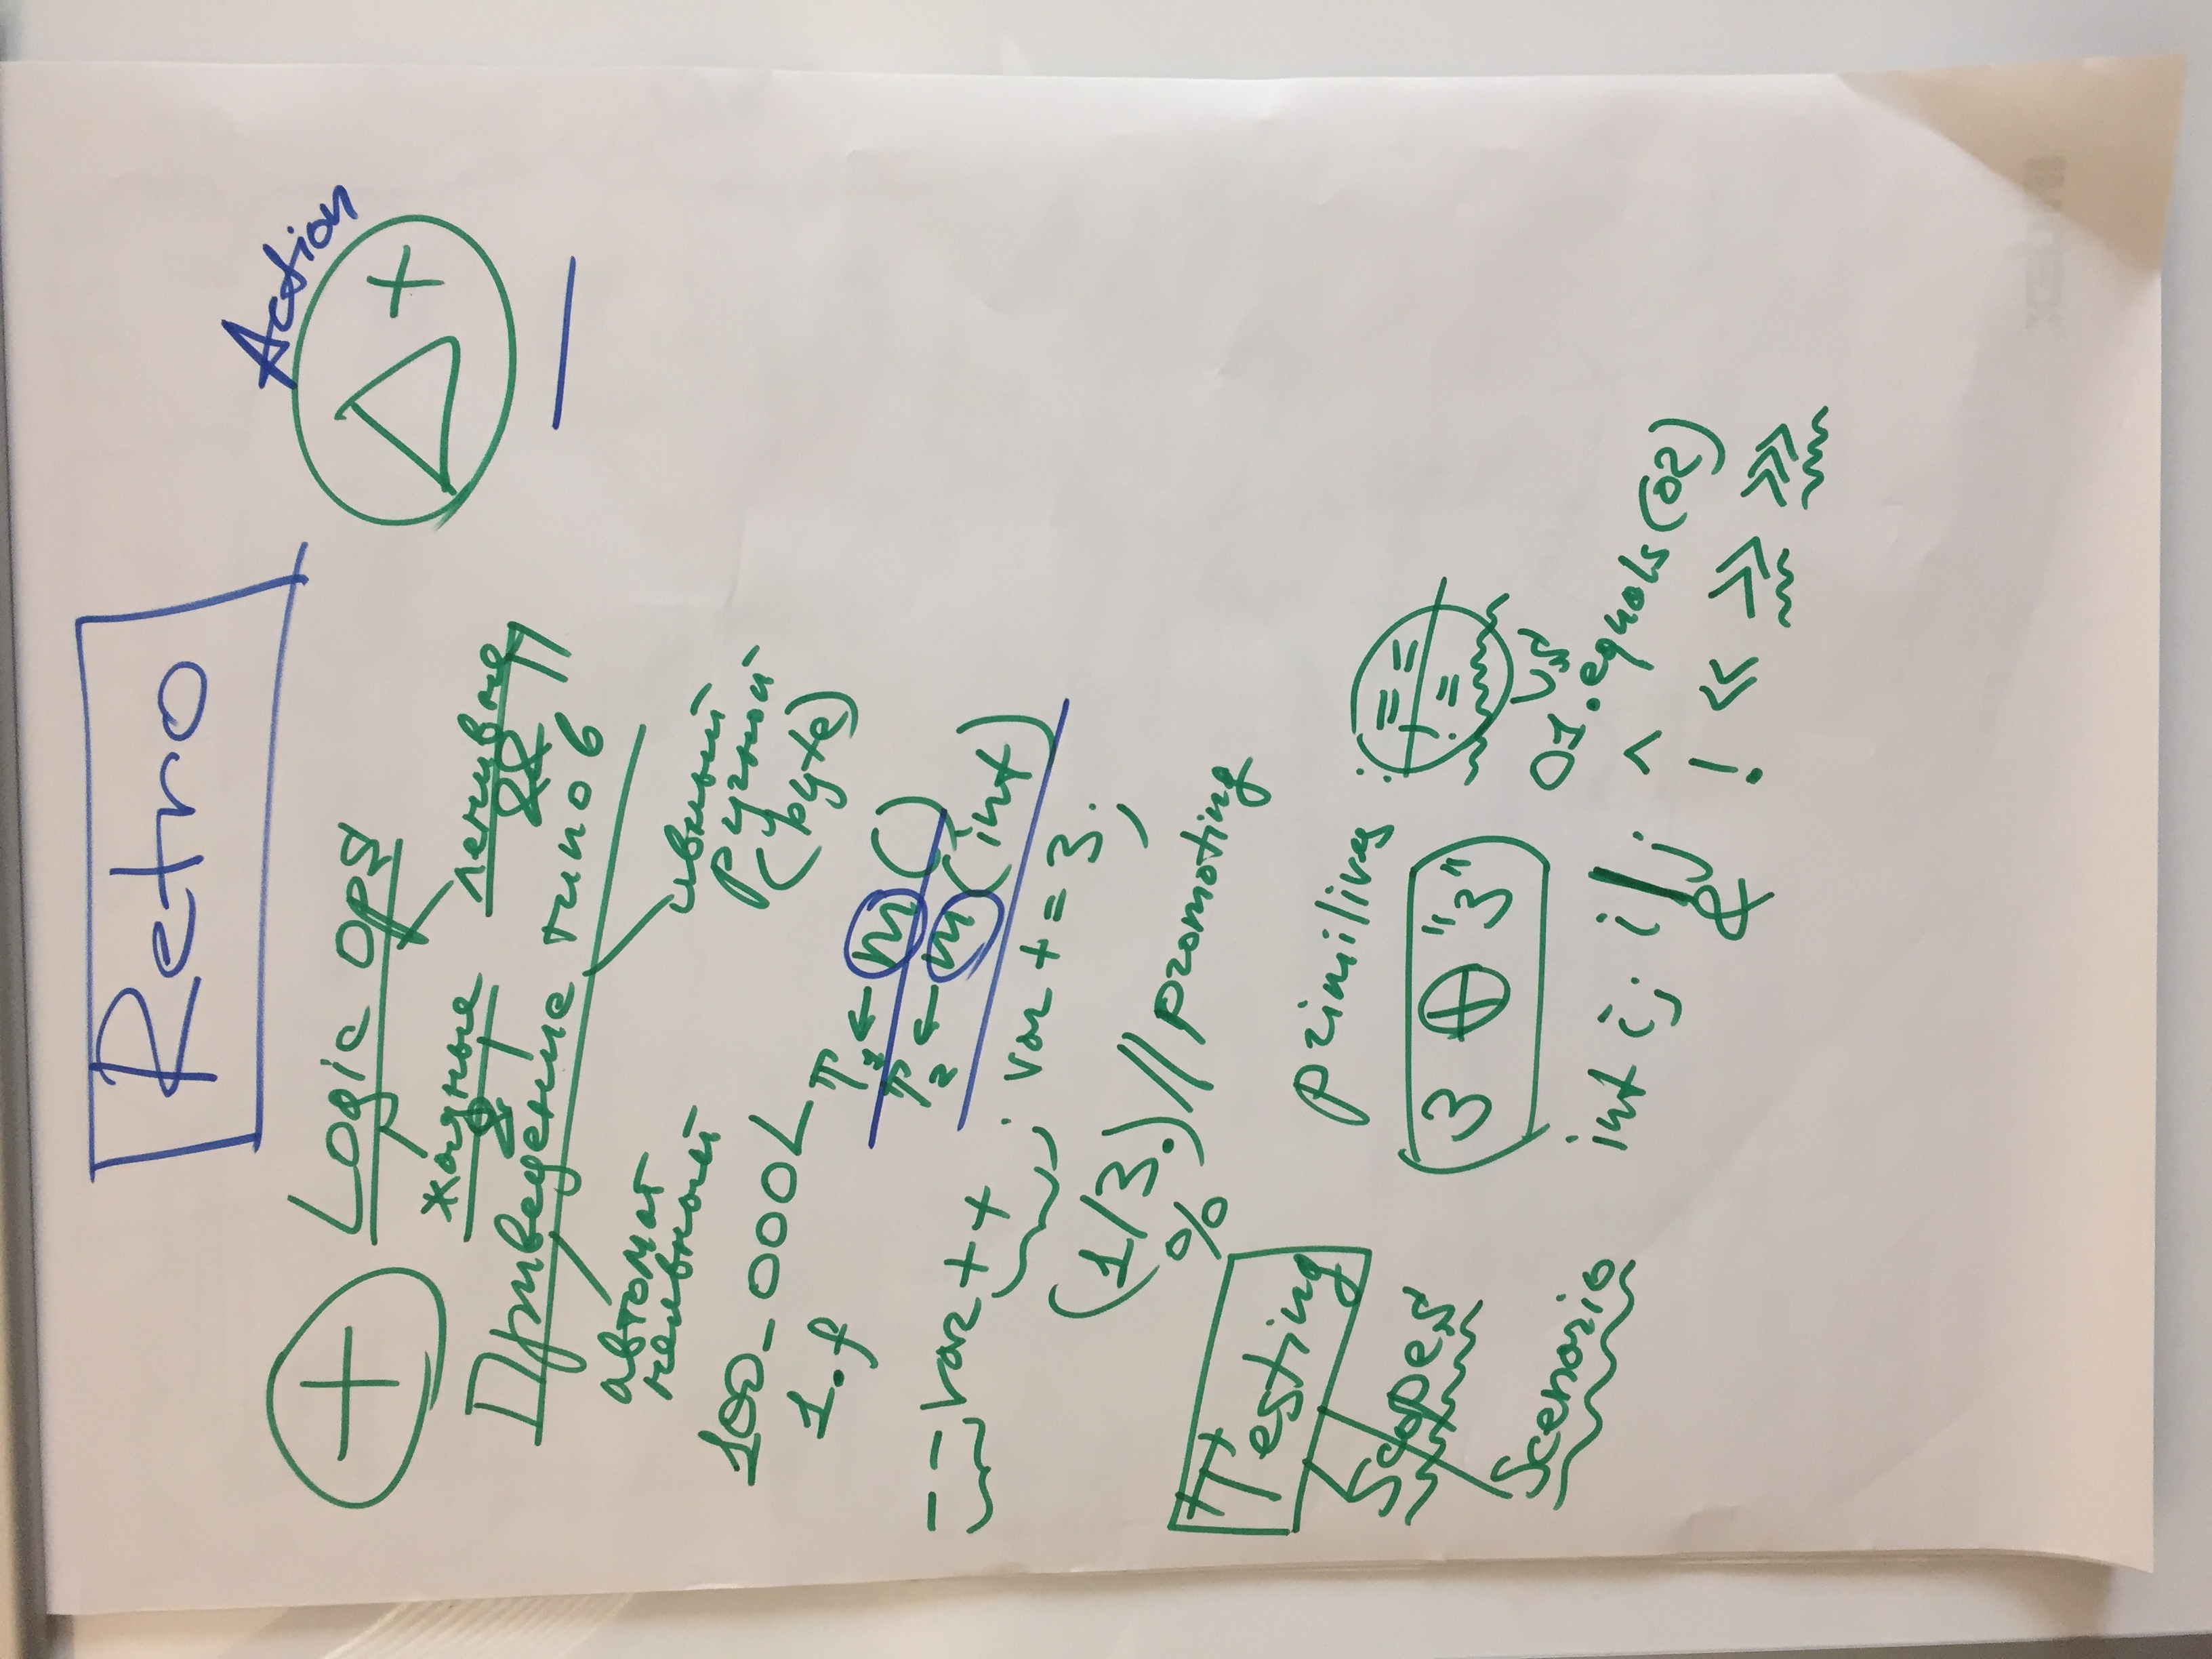 Retro
Action
+ Logic ops
Δ+
жадные ленивые
& | && ||
Приведение типов
автомат
неявный
явный
ручной
(byte)
100_000L
1.f
T1 ← m()
T2 ← m(int)
--var++; var += 3;
(1/3.) // promoting
%
Testing
Scopes
Scenario
primitives : ==
!=
3 ⊕ "3"
vs
O1.equals(O2)
int i, j i|j ^
& ! << >> >>>